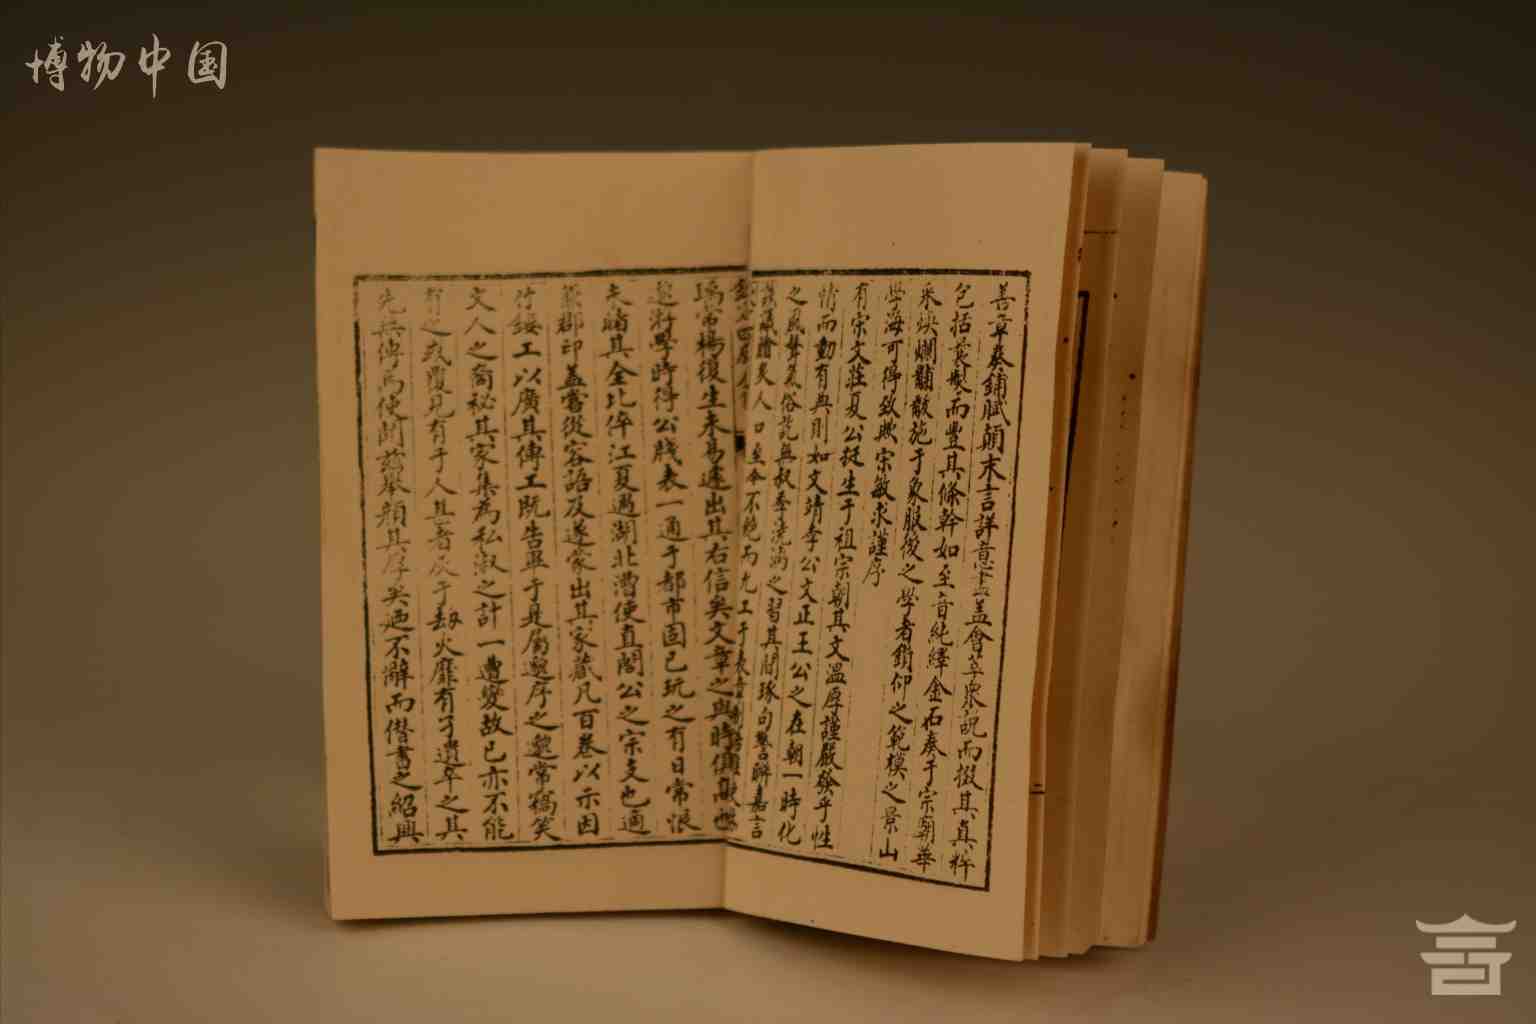 博物中国
善章奏鋪賦顛末言詳意
盖會萃衆說而掇其真粹
包括 而豐其條幹如至音純繹金石奏于宗廟華
采焕爛黼黻施于象服後之學者鑽仰之範模之景山
學海可得致歟宗敏求謹序
有宋文莊夏公挺生于祖宗朝其文溫厚謹嚴發乎性
情而動有與則如文靖李公文正王公之在朝一時化
之風聲 俗 無叔季澆漓之習其間琢句警聯嘉言
人口至今不絶而尤工于表章
爲常楊復生未易遽出其右信矣文章之與時
學時得公牋表一通于都市固已玩之有日常恨
未睹其全比倅江夏過湖北漕使直閣公之宗支也適
郡印盖嘗從容語及遂蒙出其家藏凡百卷以示因
工以廣其傳工旣告畢于是屬邀序之邀常竊笑
文人之裔祕其家集為私淑之計一遭變故已亦不能
有之或覆見有于人其者灰于刼火靡有孑遺卒之其
先無傳焉使聞 顔其厚矣 不辭而僭書之紹興